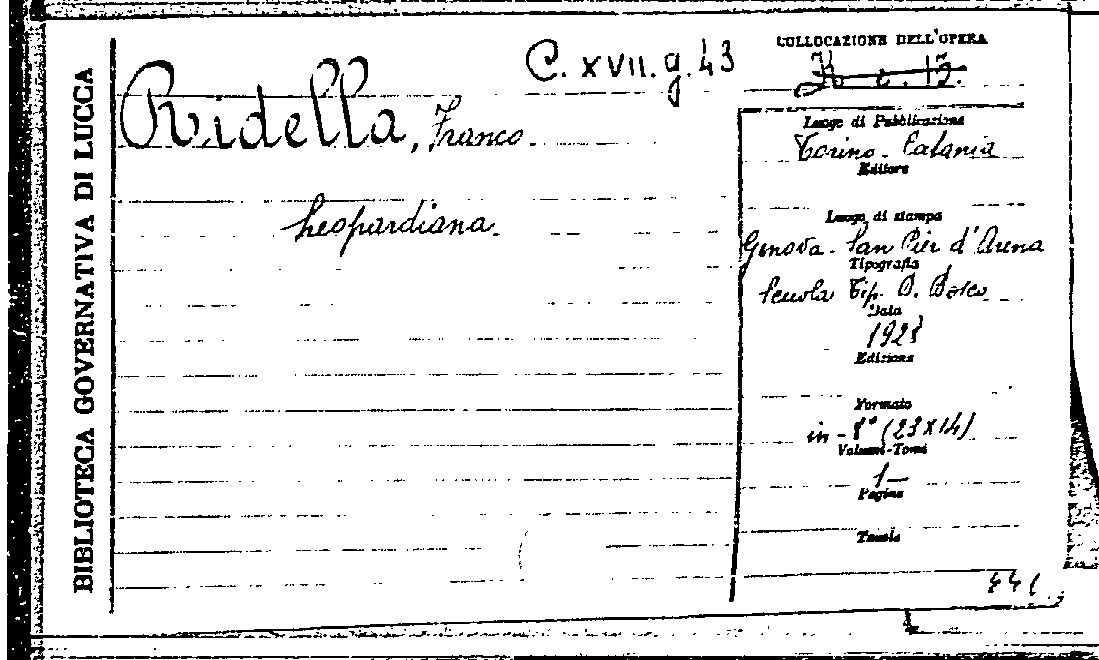 BIBLIOTECA GOVERNATIVA DI LUCCA
C. XVII. g. 43
Ridella, Franco.
Leopardiana.
COLLOCAZIONE DELL'OPERA
Luogo di Pubblicazione
Torino - Catania
Editore
Luogo di stampa
Genova - San Pier d'Arena
Tipografia
Scuola Tip. D. Bosco
Data
Edizione
Formato
in - 8° (23x14)
Volumi-Tomi
1
Pagine
Tavole